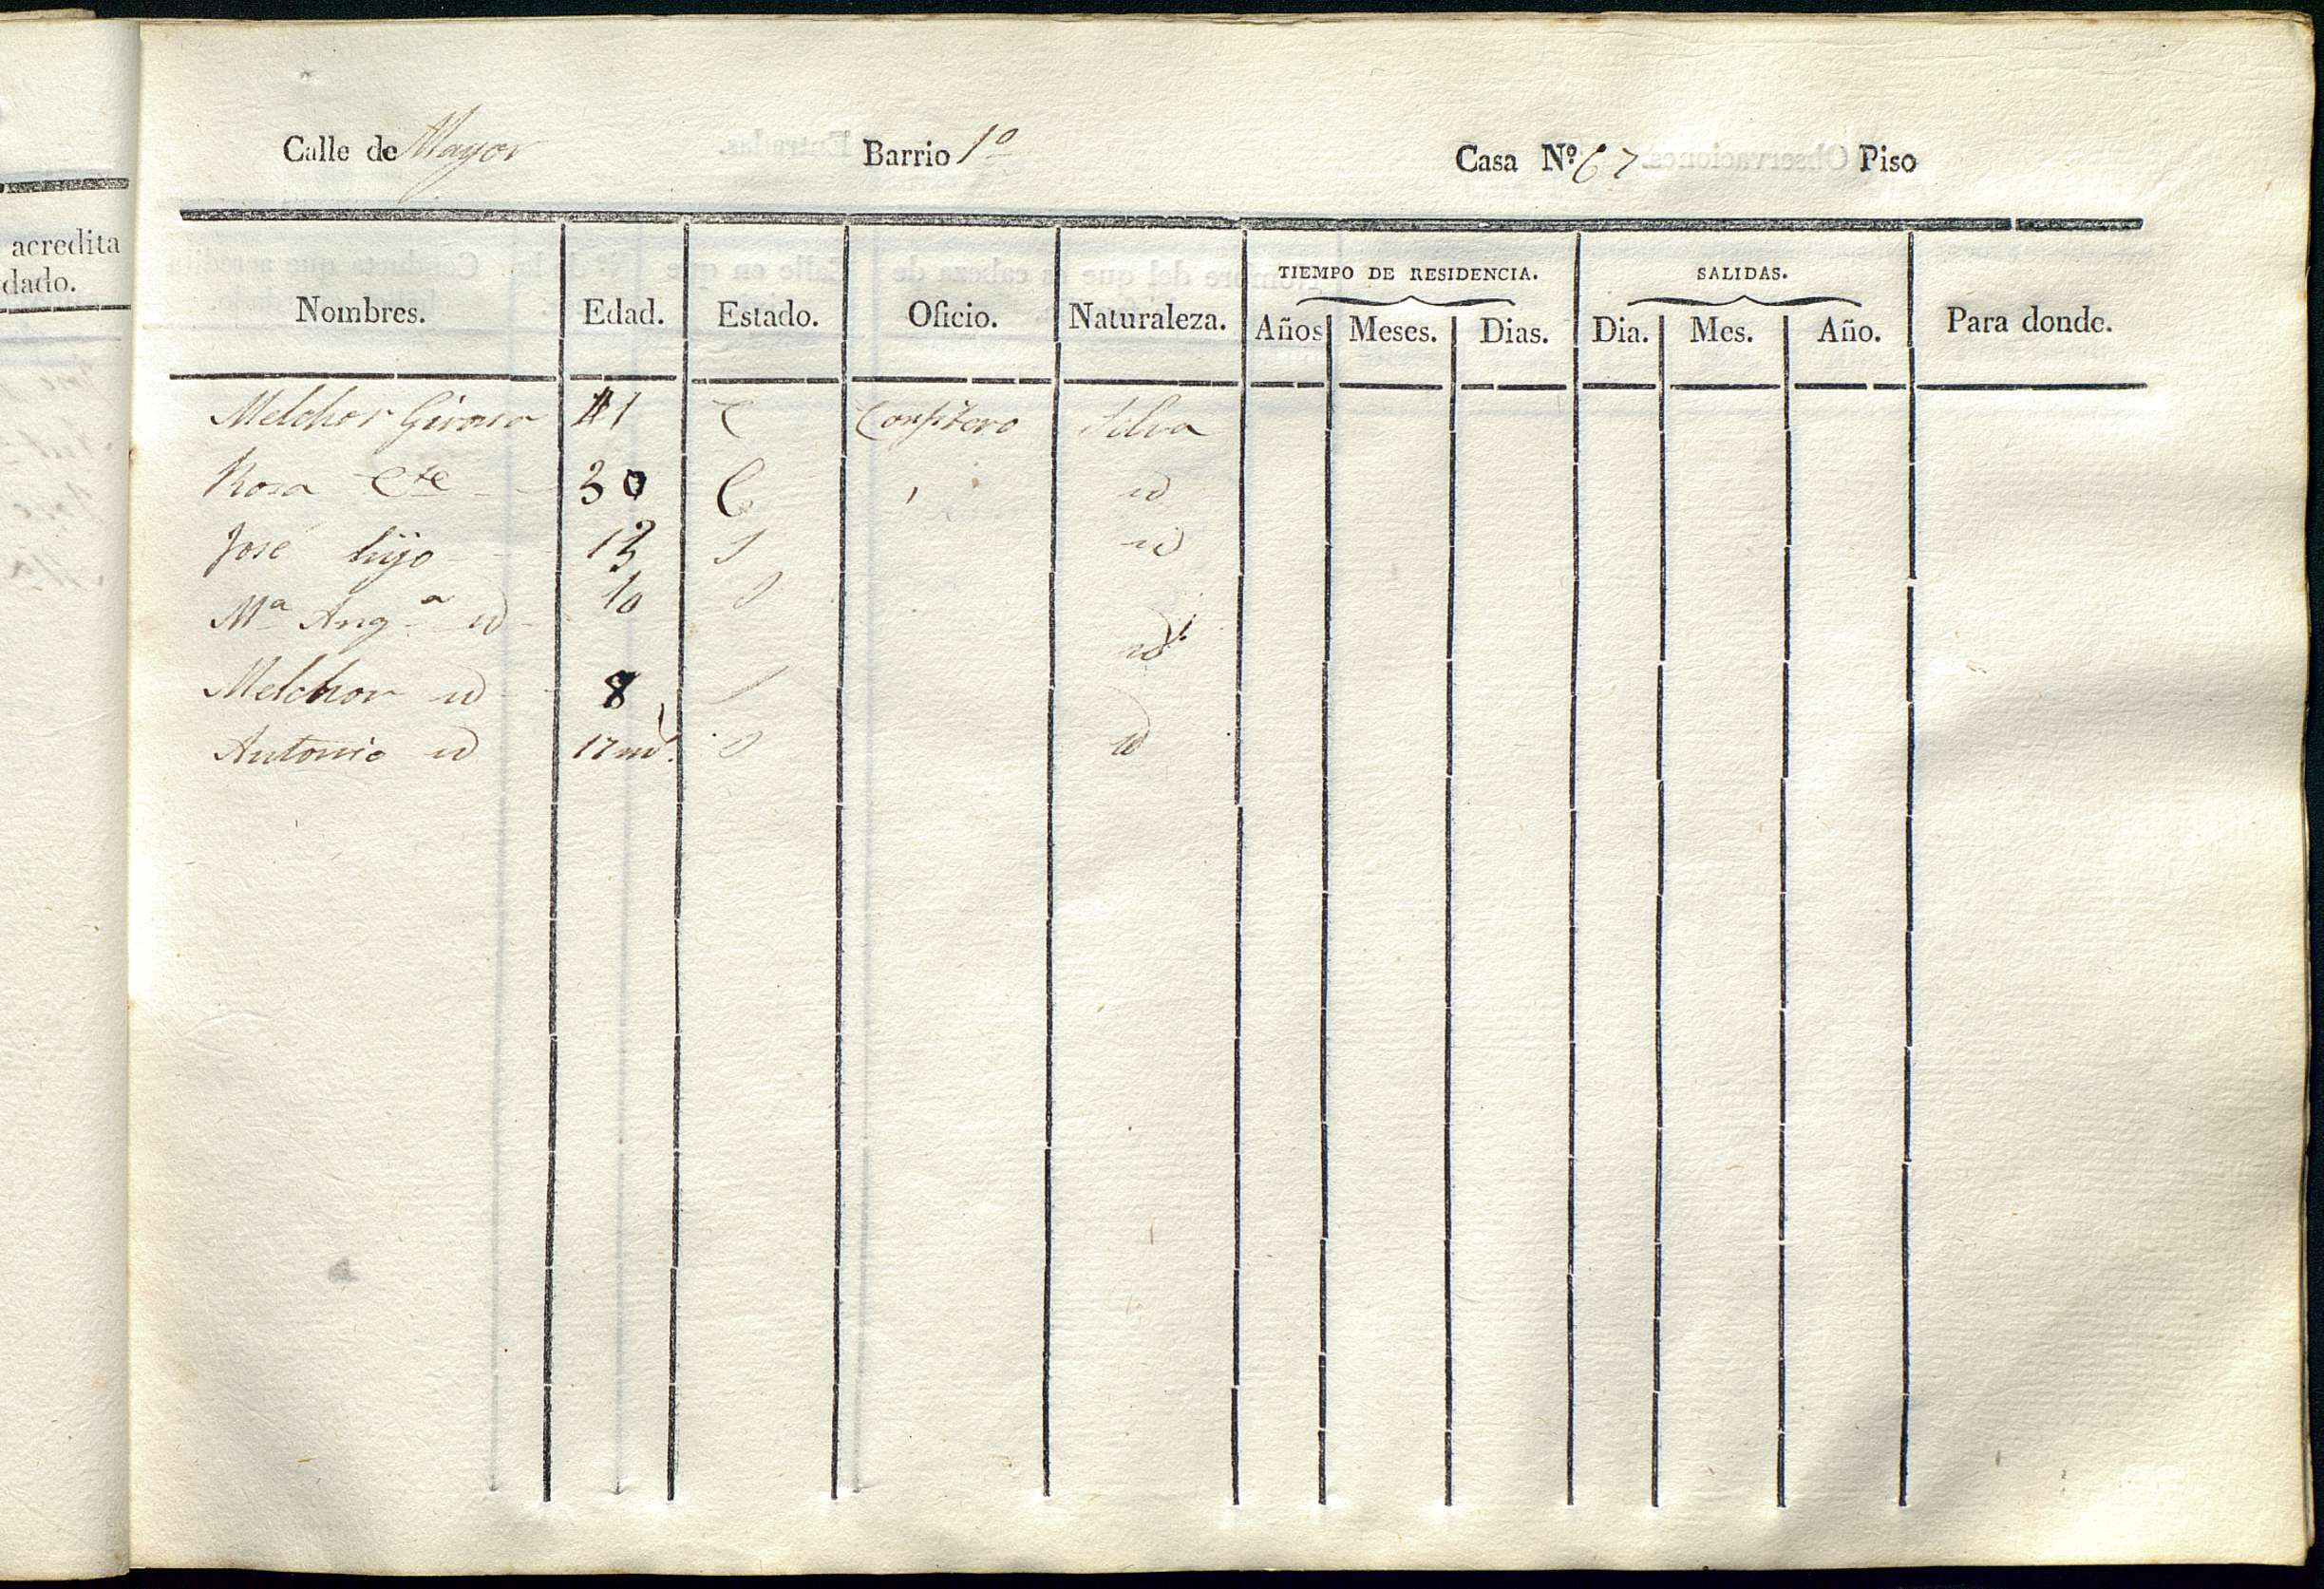 acredita
dado.
Calle de Mayor Barrio 1º Casa Nº 67 Piso
TIEMPO DE RESIDENCIA. SALIDAS.
Nombres. Edad. Estado. Oficio. Naturaleza. Años Meses. Dias. Dia. Mes. Año. Para donde.
Melchor 41 C Confitero Selva
Rosa Cte 30 C id
José hijo 13 S id
Mª Angª id 10 id
Melchor id 8
Antonio id 17 ms. id